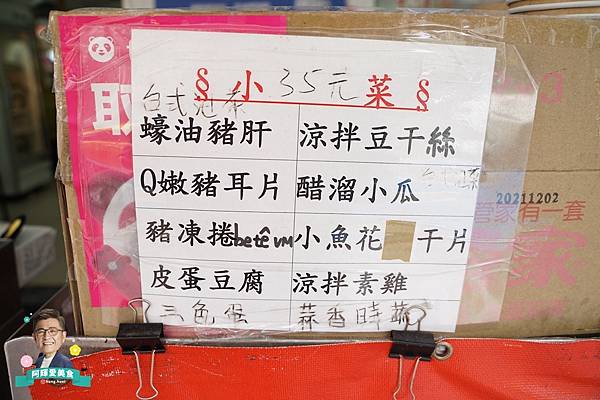 取
§小 35元 菜§
台式泡菜
蠔油豬肝 涼拌豆干絲
Q嫩豬耳片 醋溜小瓜
豬凍捲betêvm 小魚花 干片
皮蛋豆腐 涼拌素雞
三色蛋 蒜香時蔬
20211202
管家有一套
家
阿輝愛美食